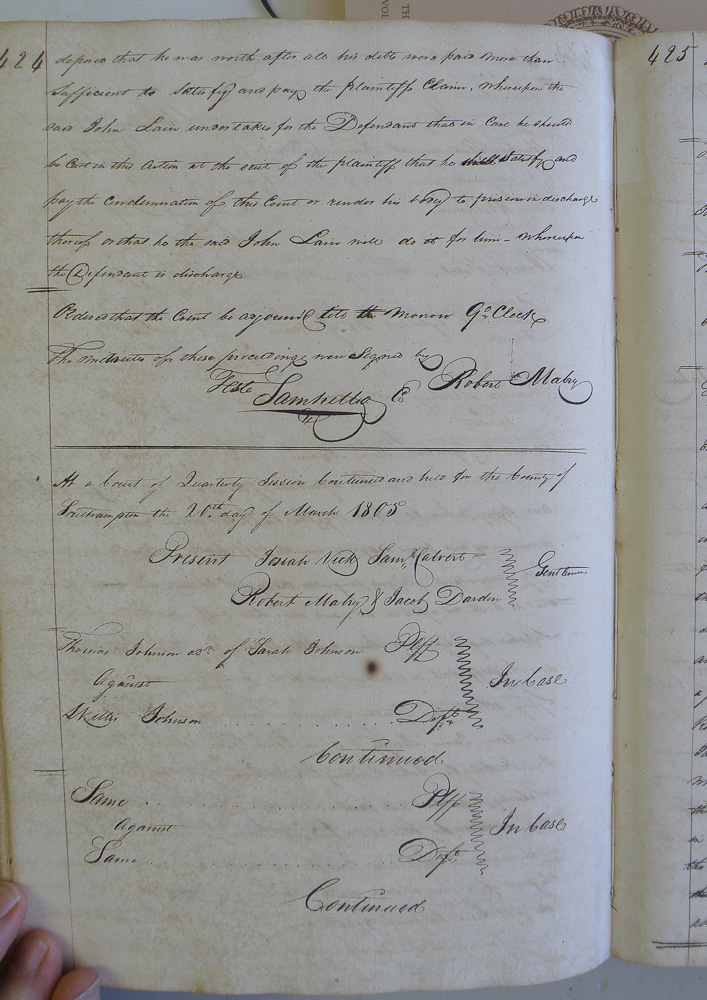 424
deposed that he was worth after all his debts were paid more than
sufficient to satisfy and pay the plaintiffs Claim, whereupon the
said John Lain undertakes for the Defendant that in Case he should
be Cast in this action at the suit of the plaintiff that he will satisfy and
pay the Condemnation of this Court or render his body to prison in discharge
thereof or that he the said John Lain will do it for him - whereupon
the Defendant is discharge
Ordered that the Court be adjourned till the morrow 9 o Clock
The minutes of these proceedings were Signed by
Robert Mabry
Teste Saml Kello C
At a Court of Quarterly Session Continued and held for the County of
Southampton the 20th day of March 1805
Present Josiah Vick Saml Calvert
Gentlemen
Robert Mabry & Jacob Darden
Thomas Johnson adr. of Sarah Johnson Plff
Against
In Case
Johnson Deft
Continued
Same Plff
Against
In Case
Same Deft
Continued
425